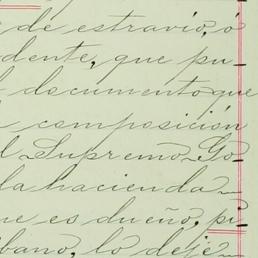 de estravío, ó
dente, que pu-
documento que
composición
l Supremo Go-
la hacienda
ue es dueño, pi-
bano, lo deje